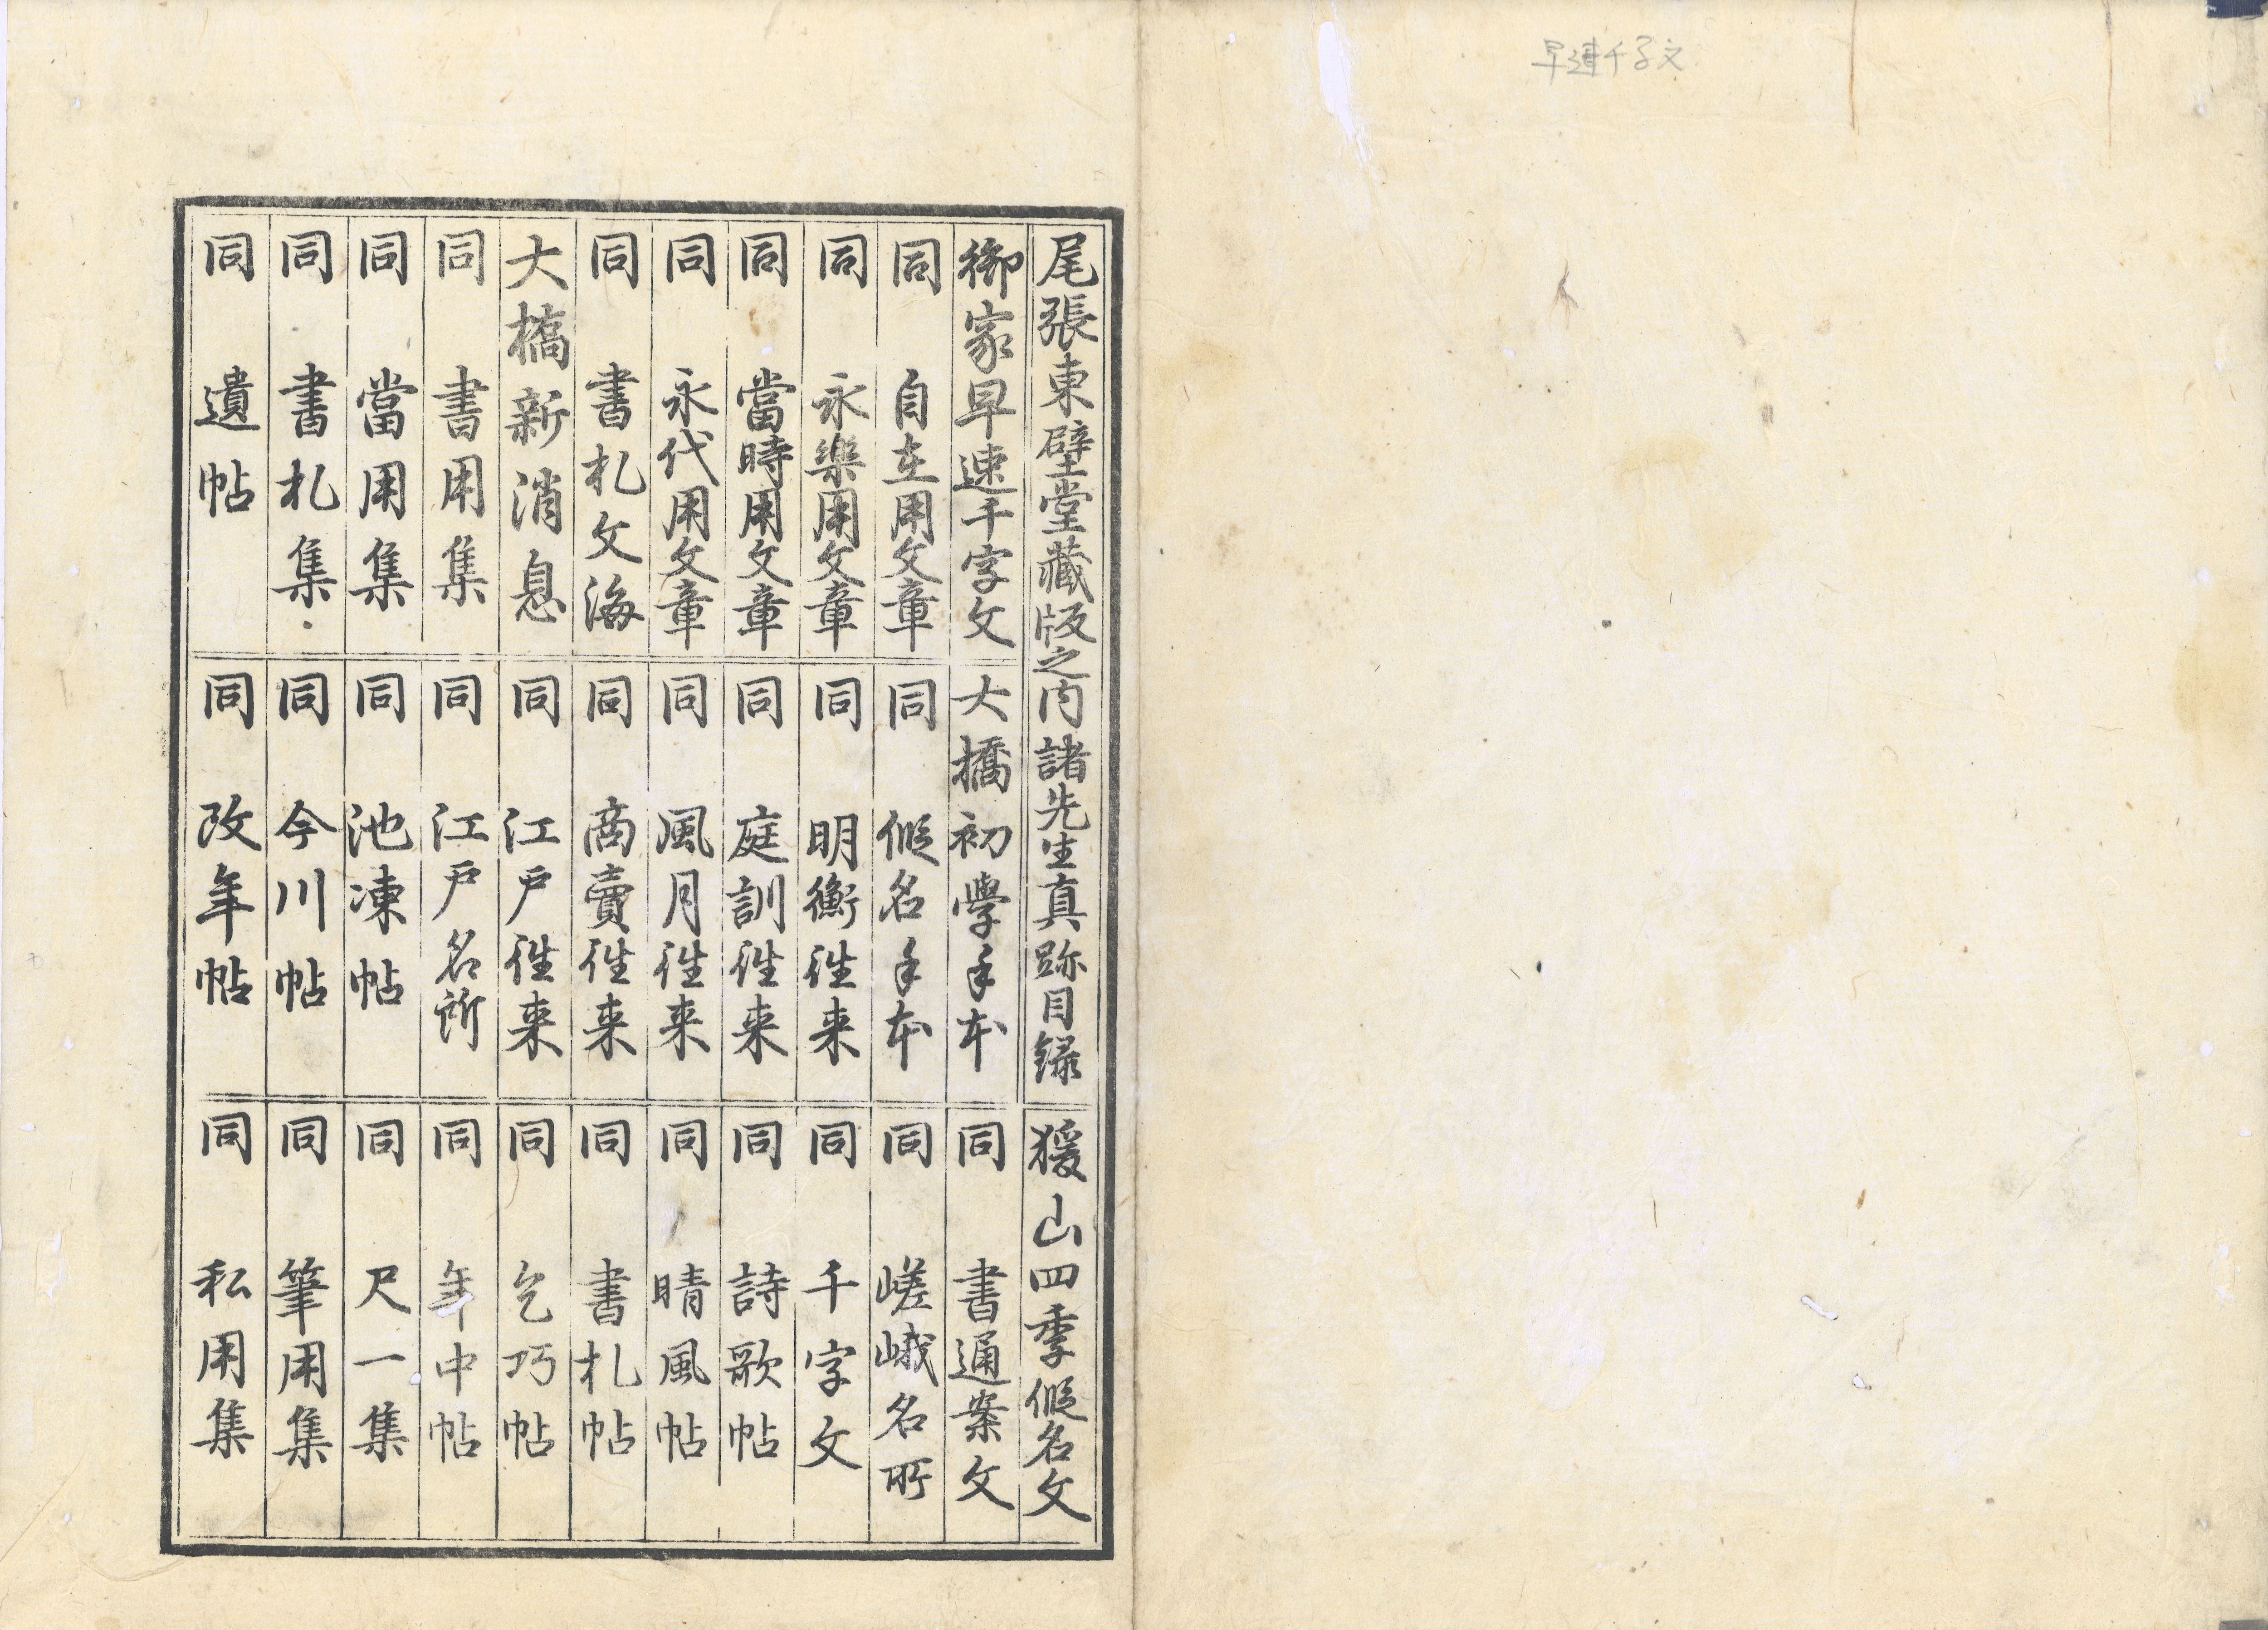 早速千字文
尾張東壁堂藏版之内諸先生真跡目録
御家早速千字文
同 自在用文章
同 永樂用文章
同 當時用文章
同 永代用文章
同 書札文海
大橋新消息
同 書用集
同 當用集
同 書札集
同 遺帖
大橋初學手本
同 假名手本
同 明衡往来
同 庭訓往来
同 風月往来
同 商賣往来
同 江戸往来
同 江戸名所
同 池凍帖
同 今川帖
同 改年帖
猨山四季假名文
同 書通案文
同 嵯峨名所
同 千字文
同 詩歌帖
同 晴風帖
同 書札帖
同 乞巧帖
同 年中帖
同 尺一集
同 筆用集
同 私用集